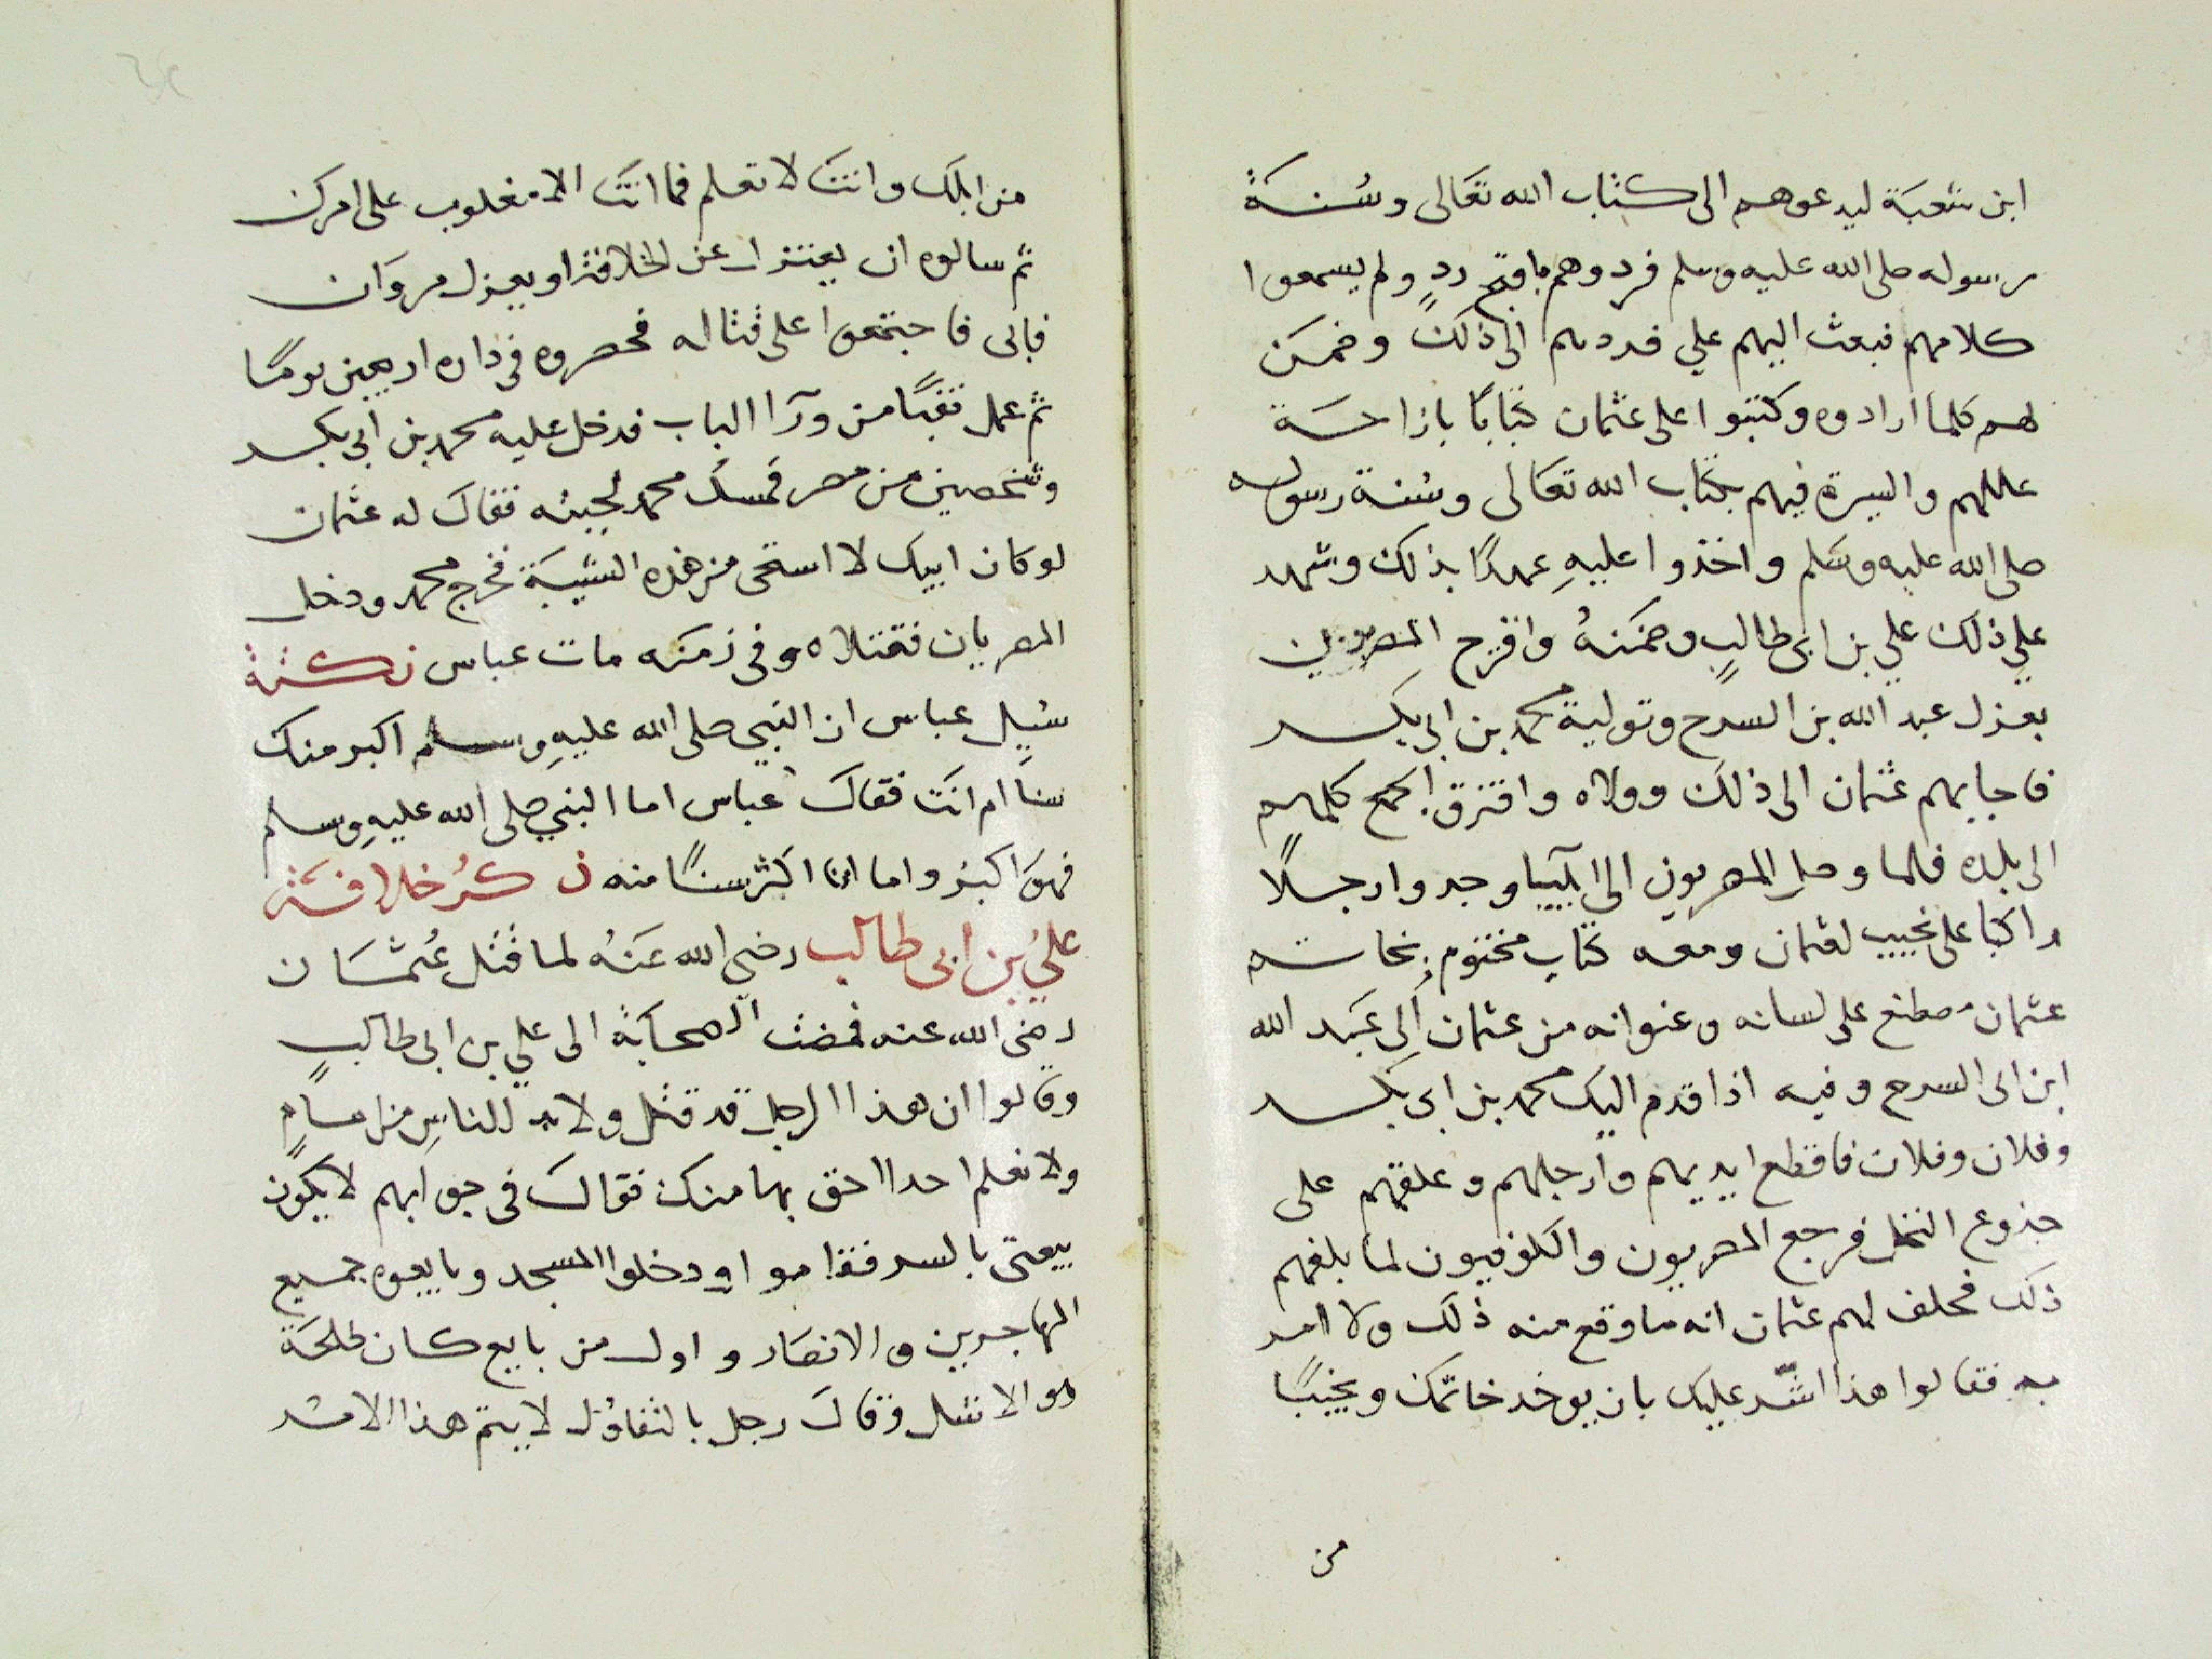 ابن شعبة ليدعوهم الى كتاب الله تعالى وسُنة
رسوله صلى الله عليه وسلم فردوهم باقبح ردٍ ولم يسمعوا
كلامهم فبعث اليهم علي فردهم الى ذلك وضمن
لهم كلما ارادوه وكتبوا على عثمان كتابًا بازاحة
عللهم والسيرة فيهم بكتاب الله تعالى وسُنة رسوله
صلى الله عليه وسلم واخذوا عليهِ عهدًا بذلك وشهد
علي ذلك علي بن ابى طالبٍ وضمنهُ واقترح المصريون
بعزل عبد الله بن السرح وتولية محمد بن ابى بكر
فاجابهم عثمان الى ذلك وولاه وافترق الجمع كلهم
الى بلده فلما وصل المصريون الى ايلييا وجدوا رجلًا
راكبا على نجيب لعثمان ومعه كتاب مختوم بخاتم
عثمان مصطنع على لسانه وعنوانه من عثمان الى عبد الله
ابن ابى السرح وفيه اذا قدم اليك محمد بن ابى بكر
وفلان وفلان فاقطع ايديهم وارجلهم وعلقهم على
جذوع النخل فرجع المصريون والكوفيون لما بلغهم
ذلك فحلف لهم عثمان انه ما وقع منه ذلك ولا امر
به فقالوا هذا اشدّ عليك بان يوخد خاتمك ونجيبًا
من
من ابلك وانت لا تعلم فما انت الا مغلوب على امرك
ثم سالوه ان يعتزل عن الخلافة او يعزل مروان
فابى فاجتمعوا على قتاله فحصروه فى داره اربعين يومًا
ثم عمل نقبًا من ورآ الباب فدخل عليه محمد بن ابى بكر
وشخصين من مصر فمسك محمد لحيته فقال له عثمان
لو كان ابيك لا استحى من هذه الشيبة فخرج محمد ودخل
المصريان فقتلاه وفى زمنه مات عباس نكتة
سُيل عباس ان النبي صلى الله عليهِ وسلم اكبر منك
سنا ام انت فقال عباس اما النبي صلى الله عليهِ وسلم
فهو اكبر واما انا اكثر سنًا منه ذكرُ خلافة
علي بن ابى طالب رضي الله عنهُ لما قتل عُثمان
رضى الله عنه فمضت الصحابة الى علي بن ابى طالبٍ
وقالوا ان هذا الرجل قد قتل ولا بد للناسِ من امامٍ
ولا نعلم احدا احق بها منك فقال فى جوابهم لا يكون
بيعتى بالسر فقاموا ودخلوا المسجد وبايعوه جميع
المهاجرين والانصار واول من بايع كان طلحة
هو الاشل وقال رجل بالتفاؤل لا يتم هذا الامر